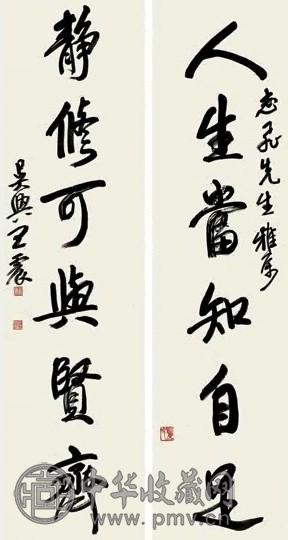 人生當知自足
先生雅属
静修可與賢齊
吴興王震
中华收藏网
www.pmv.cn